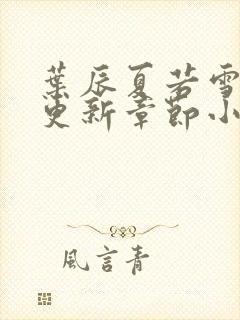 葉辰夏若雪
更新章節小
風言青